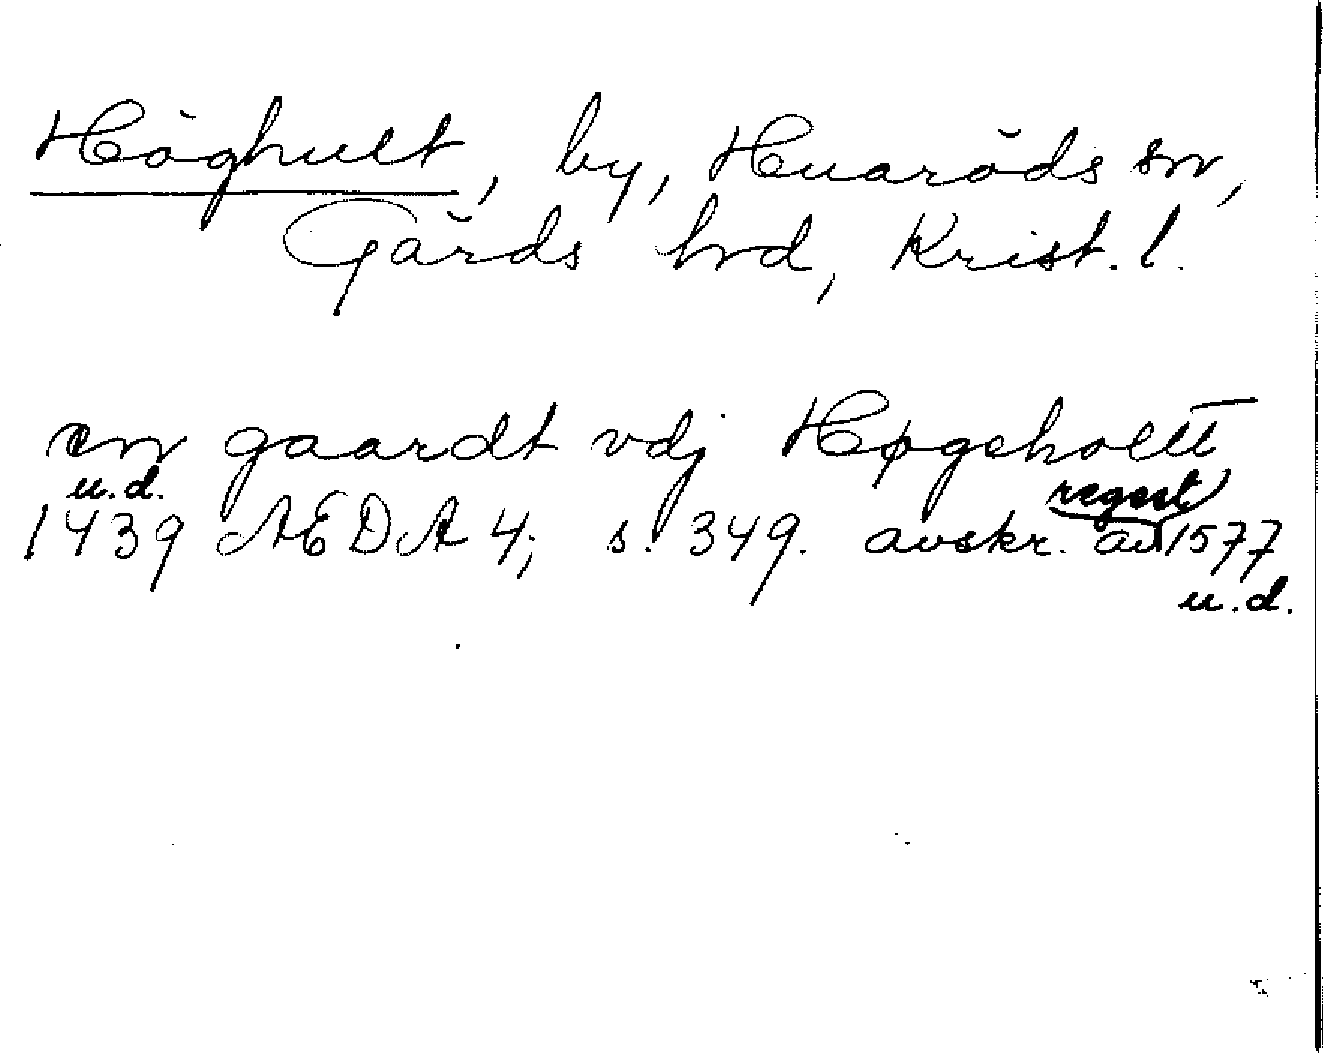 Höghult, by, Huaröds sn,
Gärds hrd, Krist. l.
en gaardt vdj Høgeholtt
u.d.
regest
1439 ÆDA 4; s. 349. avskr. av 1577
u.d.